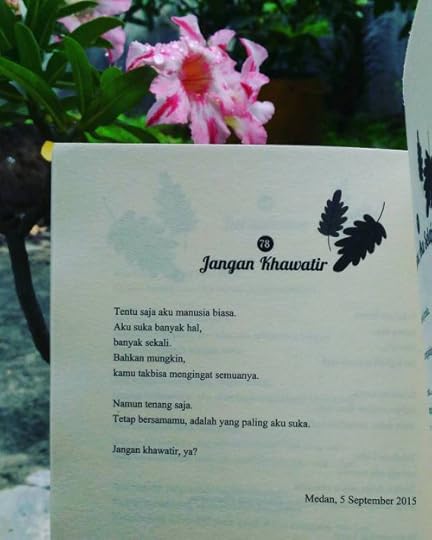 78
Jangan Khawatir
Tentu saja aku manusia biasa.
Aku suka banyak hal,
banyak sekali.
Bahkan mungkin,
kamu takbisa mengingat semuanya.
Namun tenang saja.
Tetap bersamamu, adalah yang paling aku suka.
Jangan khawatir, ya?
Medan, 5 September 2015